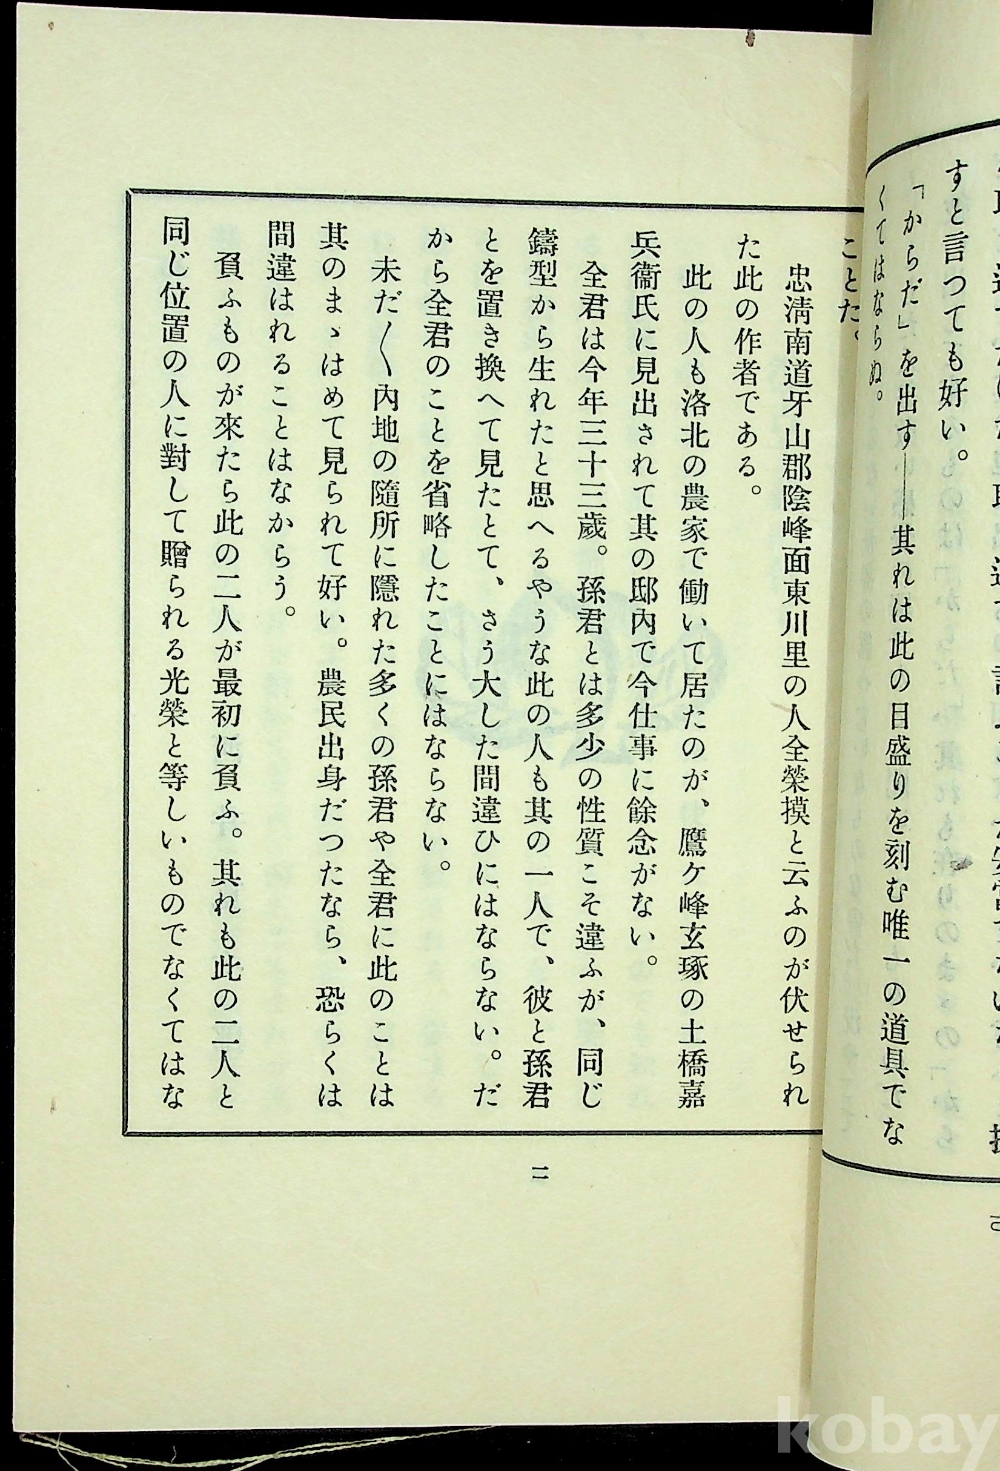 すと言つても好い。
「からだ」を出す――其れは此の目盛りを刻む唯一の道具でな
くてはならぬ。
ことだ。
忠淸南道牙山郡陰峰面東川里の人全榮摸と云ふのが伏せられ
た此の作者である。
此の人も洛北の農家で働いて居たのが、鷹ケ峰玄琢の土橋嘉
兵衞氏に見出されて其の邸內で今仕事に餘念がない。
全君は今年三十三歲。孫君とは多少の性質こそ違ふが、同じ
鑄型から生れたと思へるやうな此の人も其の一人で、彼と孫君
とを置き換へて見たとて、さう大した間違ひにはならない。だ
から全君のことを省略したことにはならない。
未だ〱內地の隨所に隱れた多くの孫君や全君に此のことは
其のまゝはめて見られて好い。農民出身だつたなら、恐らくは
間違はれることはなからう。
負ふものが來たら此の二人が最初に負ふ。其れも此の二人と
同じ位置の人に對して贈られる光榮と等しいものでなくてはな
二
kobay